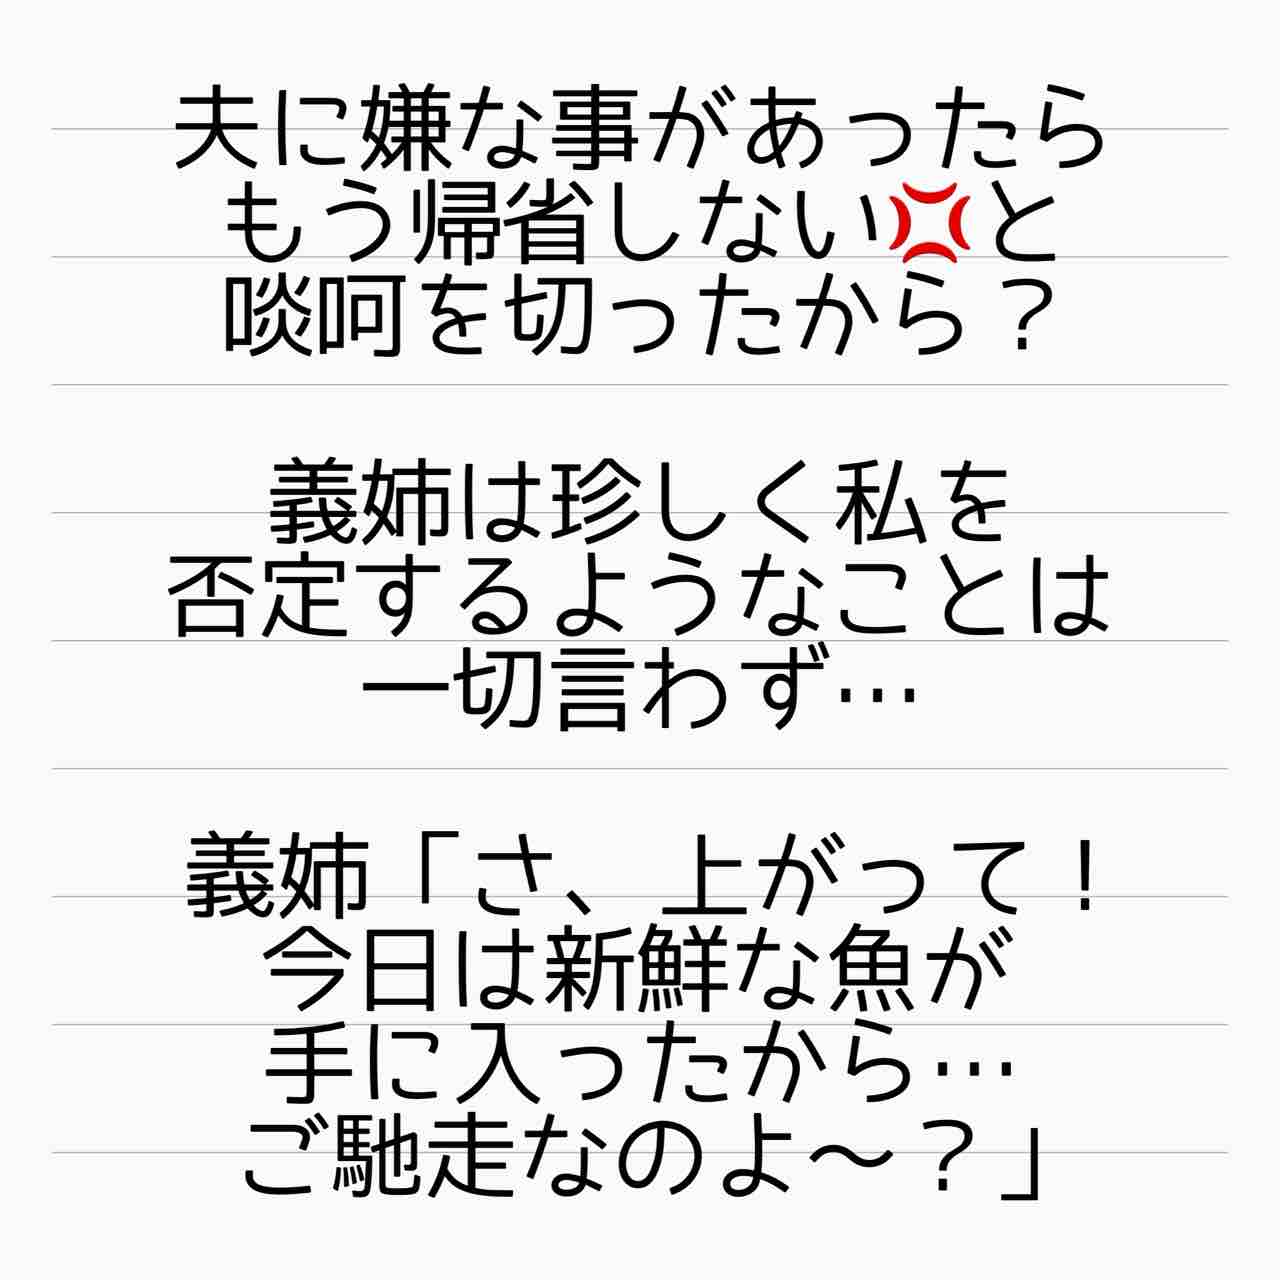 夫に嫌な事があったら
もう帰省しない💢と
啖呵を切ったから？
義姉は珍しく私を
否定するようなことは
一切言わず…
義姉「さ、上がって！
今日は新鮮な魚が
手に入ったから…
ご馳走なのよ〜？」